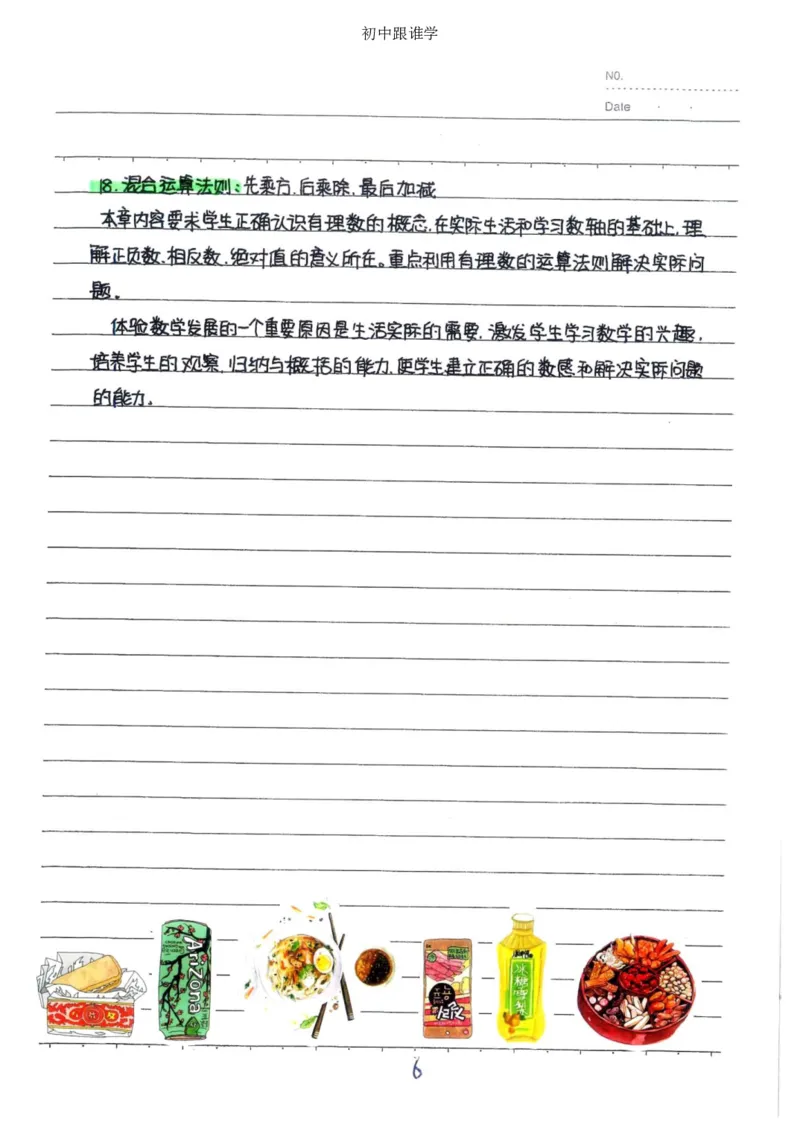 初中跟谁学
NO.
Date
18.混合运算法则:先乘方,后乘除,最后加减
本章内容要求学生正确认识有理数的概念,在实际生活和学习数轴的基础上,理
解正负数,相反数,绝对值的意义所在。重点利用有理数的运算法则解决实际问
题。
体验数学发展的一个重要原因是生活实际的需要,激发学生学习数学的兴趣,
培养学生的观察,归纳与概括的能力,使学生建立正确的数感和解决实际问题
的能力。
AriZona
冰糖雪梨
6